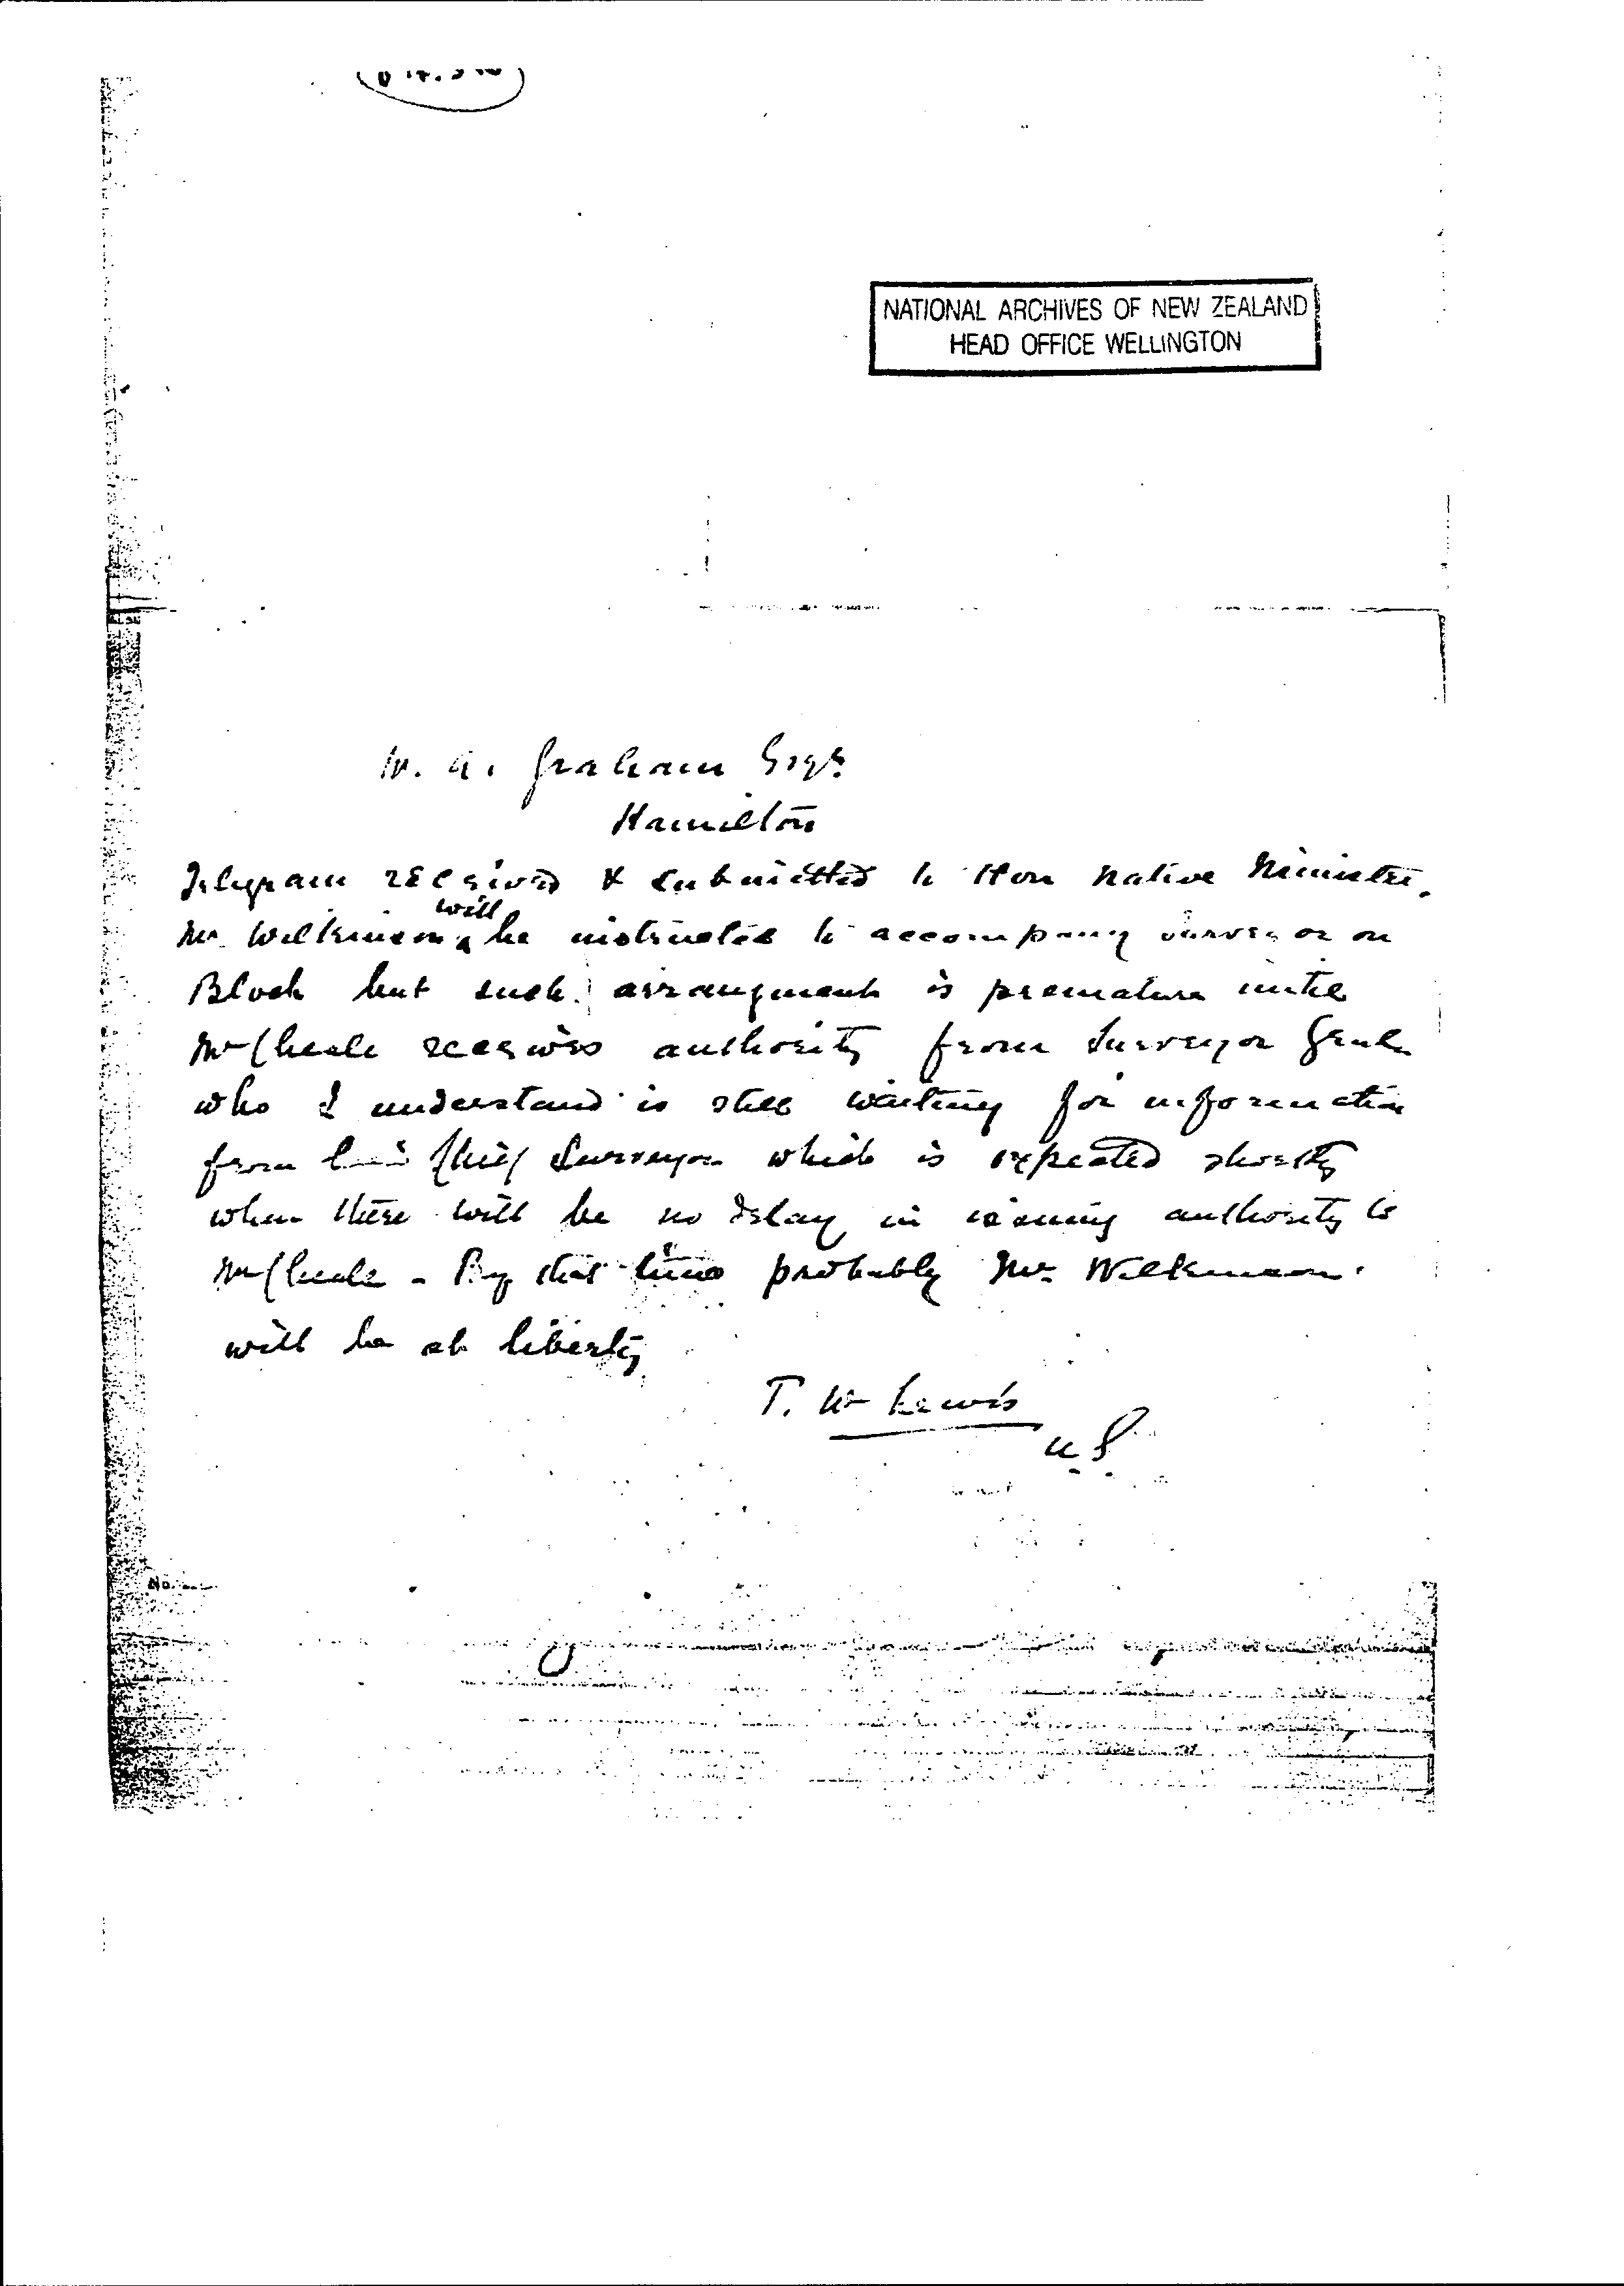 NATIONAL ARCHIVES OF NEW ZEALAND
HEAD OFFICE WELLINGTON
W. A. Graham Esqr
Hamilton
Telegram received & submitted to Hon Native Minister.
will
Mr. Wilkinson be instructed to accompany surveyor on
Block but such arrangement is premature until
Mr Cheale receives authority from Surveyor Genl
who I understand is still waiting for information
from Chief Surveyor which is expected shortly
when there will be no delay in issuing authority to
Mr Cheale - By that time probably Mr. Wilkinson
will be at liberty
T. W Lewis
U.S.
No.